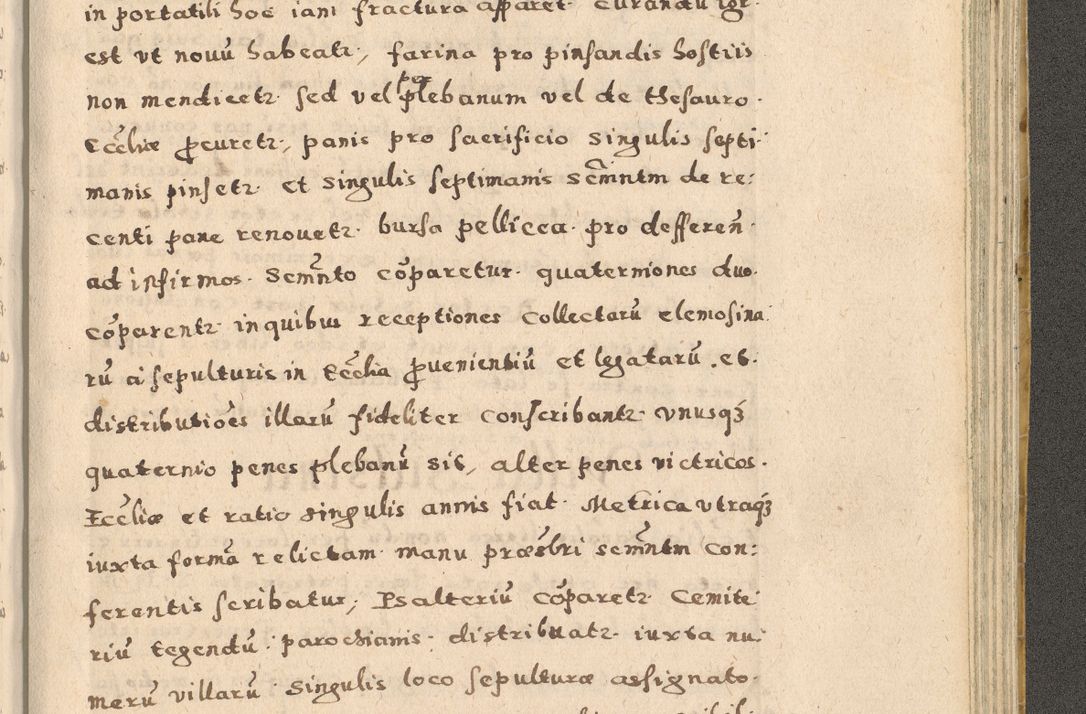 in portatili hoc iam fractura apparet. curandū igr.
est vt nouū habeatr, farina pro pinsandis hostiis
non mendicetr. sed vel per plebanum vel de thesauro.
Eccłiæ pcuretr, panis pro sacrificio singulis septi-
manis pinsetr. et singulis septimanis Scm̃ntm de re:
centi pane renouetr. bursa pellicea. pro defferen̄.
ad infirmos. Scm̃nto cōparetur. quaterniones duo.
cōparentr. in quibus receptiones collectarū elemosina:
rū a sepulturis in Eccłia pueniẽtiū et legatarū. et.
distributiōes illarū fideliter conscribantr. vnusqꝫ
quaternio penes plebanū sit, alter penes victricos.
Eccłiæ et ratio singulis annis fiat. Metrica vtraqꝫ
iuxta formā relictam. manu præsbri scm̃ntm con:
ferentis scribatur, Psalteriū cōparetr. Cemite:
riū tegendū. parochianis. distribuatr. iuxta nu:
merū villarū. singulis loco sepulturæ assignato.